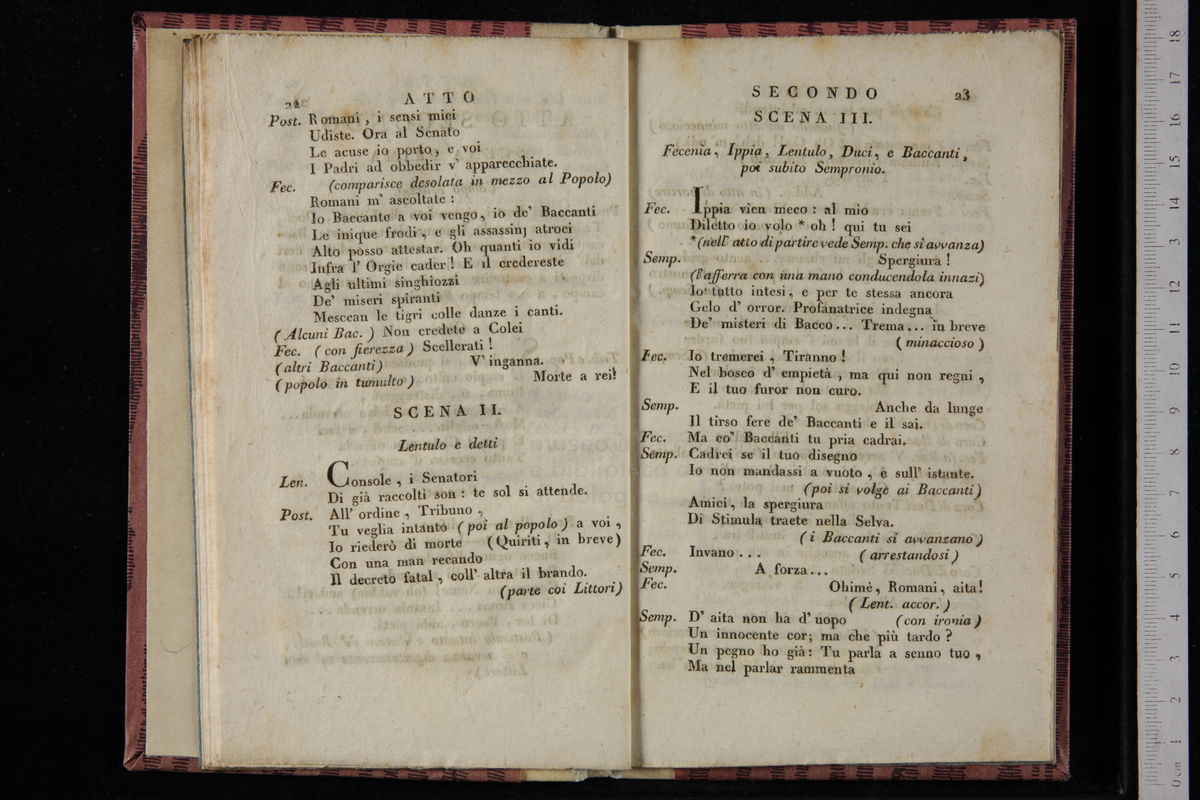 22 ATTO
Post. Romani, i sensi miei
Udiste. Ora al Senato
Le acuse io porto, e voi
I Padri ad obbedir v' apparecchiate.
Fec. (comparisce desolata in mezzo al Popolo)
Romani m' ascoltate :
Io Baccante a voi vengo, io de' Baccanti
Le inique frodi, e gli assassinj atroci
Alto posso attestar. Oh quanti io vidi
Infra l' Orgie cader! E il credereste
Agli ultimi singhiozzi
De' miseri spiranti
Mescean le tigri colle danze i canti.
(Alcuni Bac.) Non credete a Colei
Fec. (con fierezza) Scellerati!
(altri Baccanti) V' inganna.
(popolo in tumulto) Morte a rei!
SCENA II.
Lentulo e detti
Len. Console, i Senatori
Di già raccolti son : te sol si attende.
Post. All' ordine, Tribuno,
Tu veglia intanto (poi al popolo) a voi,
Io riederò di morte (Quiriti, in breve)
Con una man recando
Il decreto fatal, coll' altra il brando.
(parte coi Littori)
SECONDO 23
SCENA III.
Fecenia, Ippia, Lentulo, Duci, e Baccanti,
poi subito Sempronio.
Fec. Ippia vien meco : al mio
Diletto io volo * oh! qui tu sei
*(nell' atto di partire vede Semp. che si avvanza)
Semp. Spergiura!
(l'afferra con una mano conducendola innazi)
Io tutto intesi, e per te stessa ancora
Gelo d' orror. Profanatrice indegna
De' misteri di Bacco... Trema... in breve
(minaccioso)
Fec. Io tremerei, Tiranno!
Nel bosco d' empietà, ma qui non regni,
E il tuo furor non curo.
Semp. Anche da lunge
Il tirso fere de' Baccanti e il sai.
Fec. Ma co' Baccanti tu pria cadrai.
Semp. Cadrei se il tuo disegno
Io non mandassi a vuoto, e sull' istante.
(poi si volge ai Baccanti)
Amici, la spergiura
Di Stimula traete nella Selva.
(i Baccanti si avvanzano)
Fec. Invano... (arrestandosi)
Semp. A forza...
Fec. Ohimè, Romani, aita!
(Lent. accor.)
Semp. D' aita non ha d' uopo (con ironia)
Un innocente cor; ma che più tardo?
Un pegno ho già: Tu parla a senno tuo,
Ma nel parlar rammenta